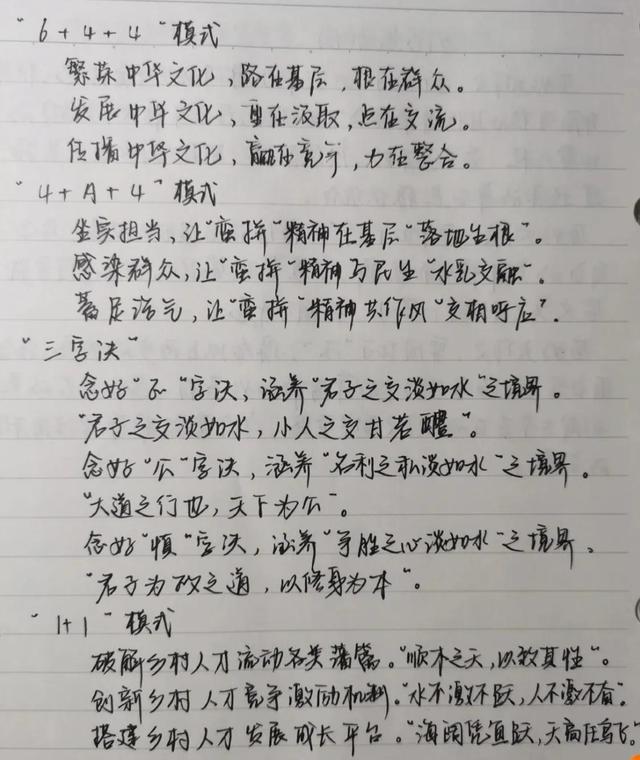 “6+4+4”模式
繁荣中华文化，路在基层，根在群众。
发展中华文化，重在汲取，点在交流。
传播中华文化，赢在竞争，力在整合。
“4+A+4”模式
坐实担当，让“蛮拼”精神在基层“落地生根”。
感染群众，让“蛮拼”精神与民生“水乳交融”。
蓄足浩气，让“蛮拼”精神共作风“交相呼应”.
“三字决”
念好“正”字决，涵养“君子之交淡如水”之境界。
“君子之交淡如水，小人之交甘若醴”。
念好“公”字决，涵养“名利之私淡如水”之境界。
“大道之行也，天下为公”。
念好“慎”字决，涵养“争胜之心淡如水”之境界。
“君子为政之道，以修身为本”。
“1+1”模式
破解乡村人才流动各类藩篱。“顺木之天，以致其性”。
创新乡村人才竞争激励机制。“水不激不跃，人不激不奋”。
搭建乡村人才发展成长平台。“海阔凭鱼跃，天高任鸟飞。”